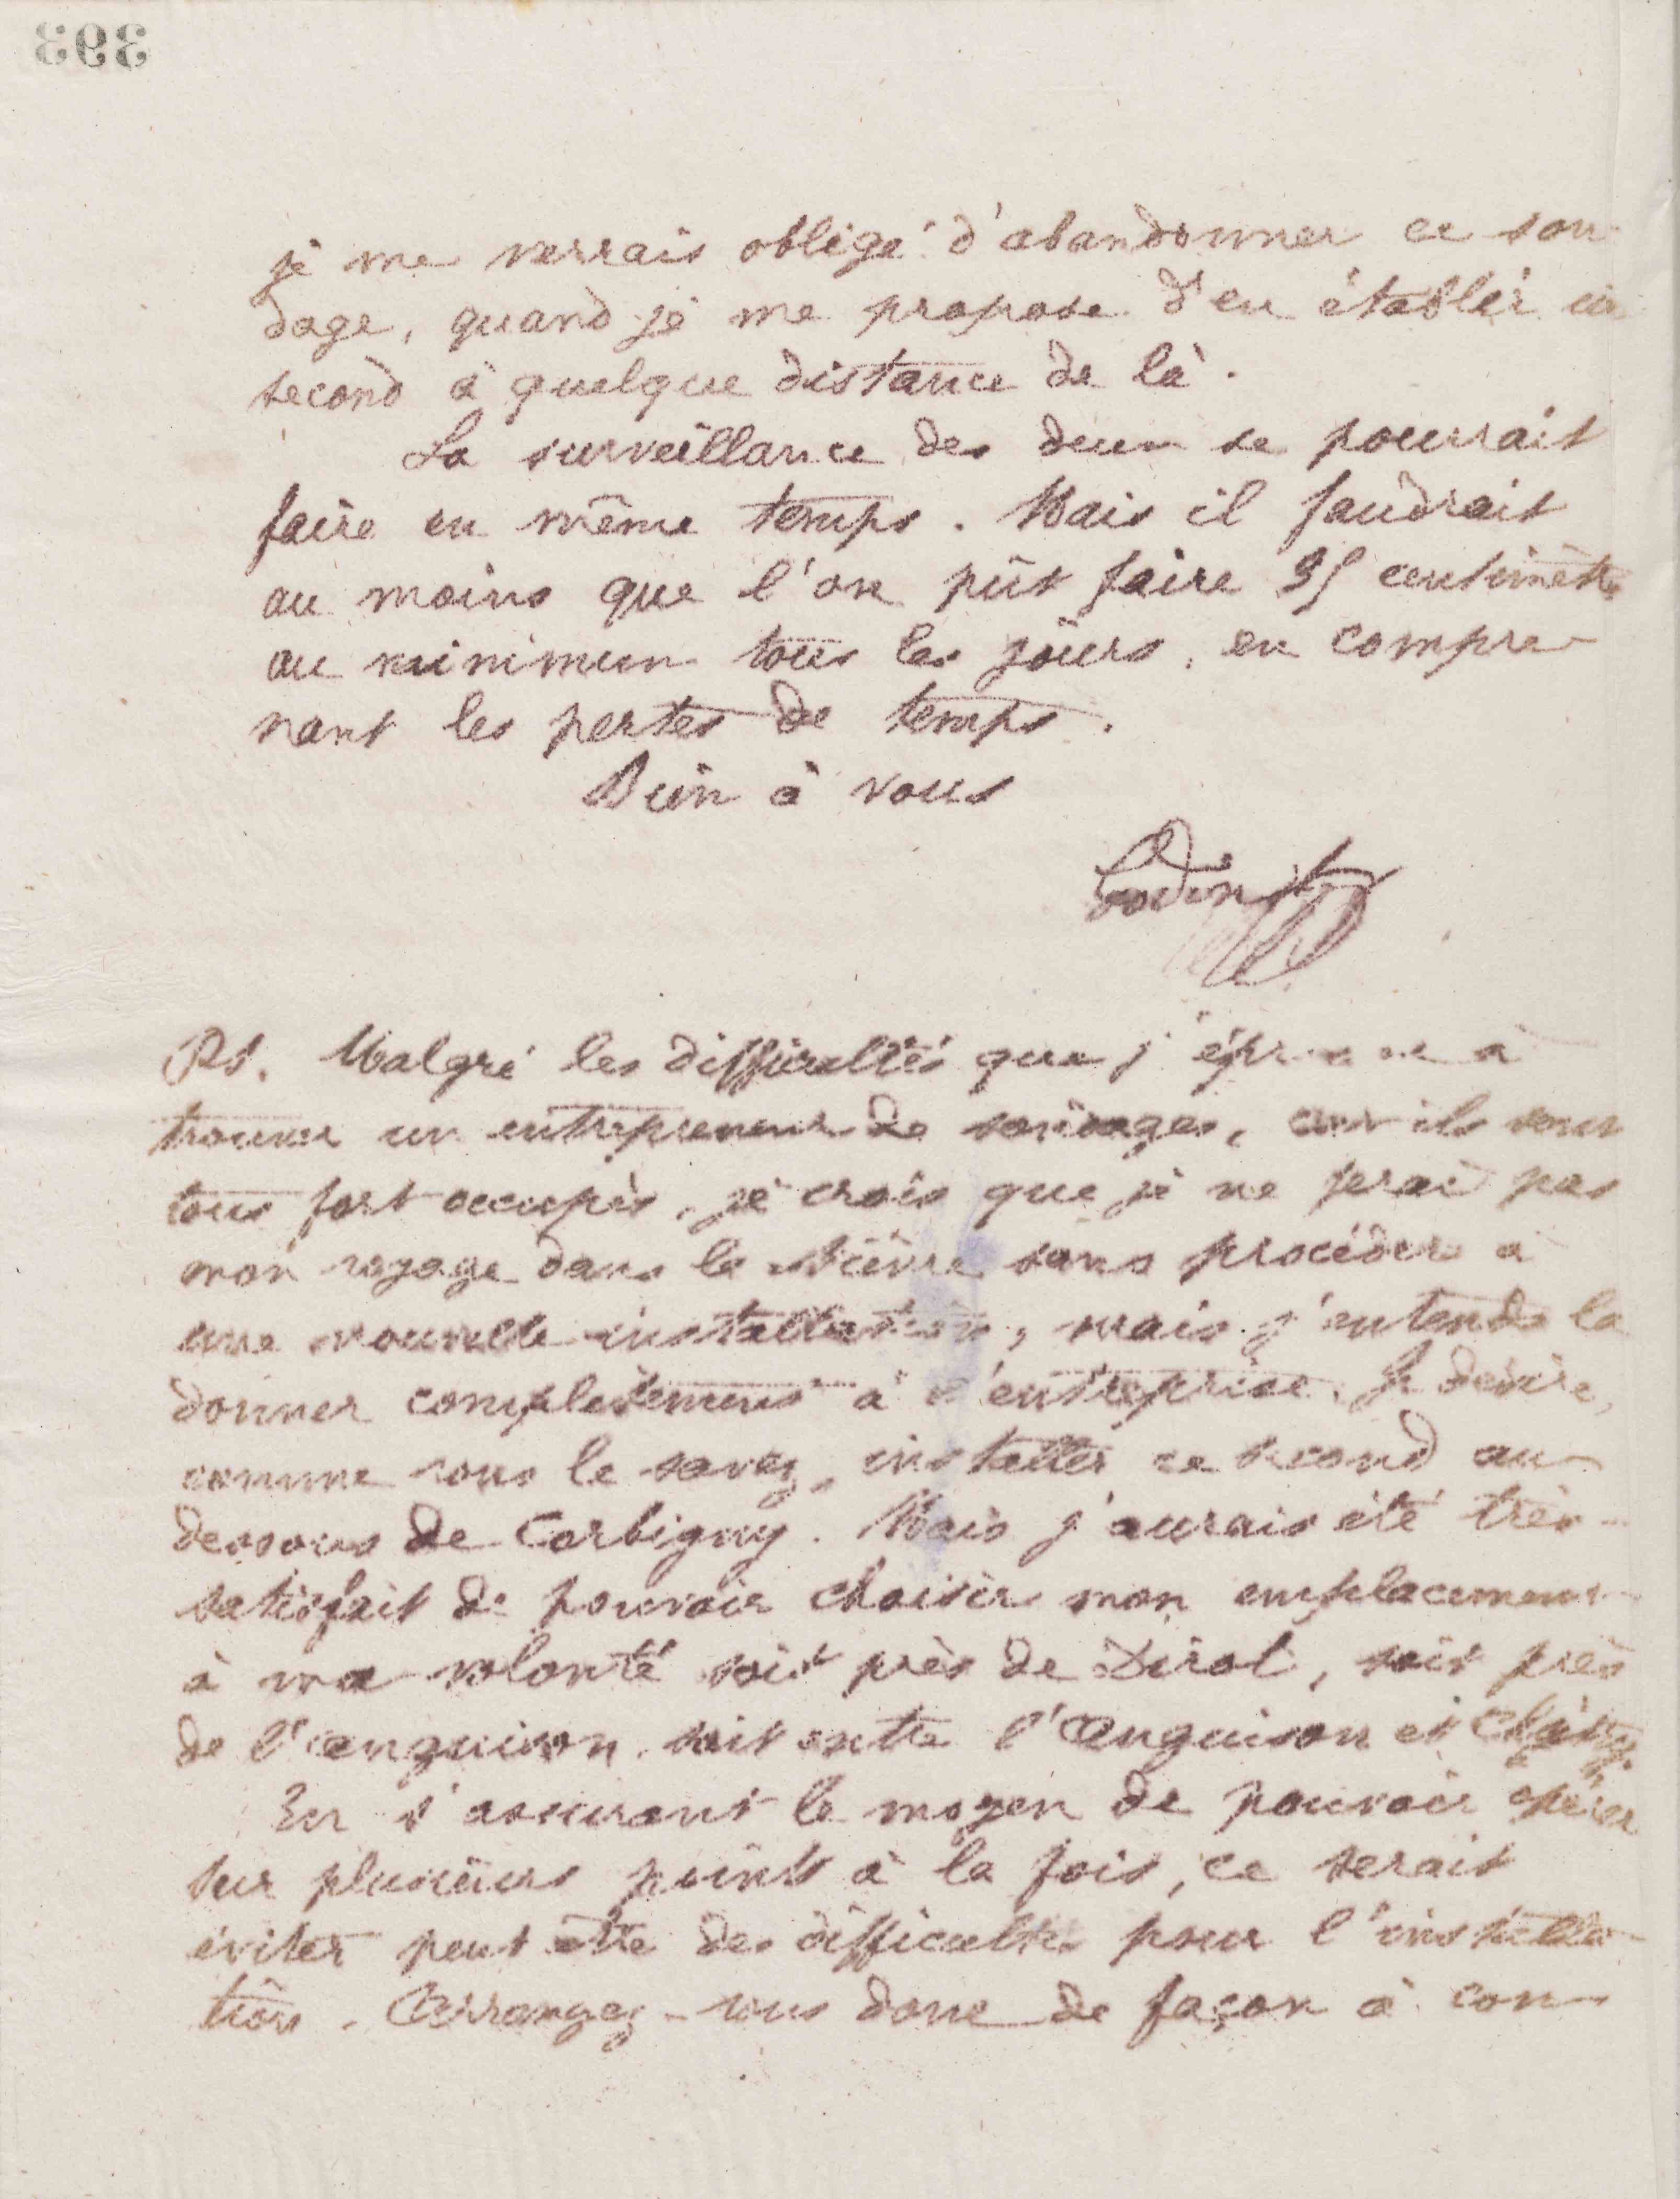 393
je me verrais obligé d'abandonner ce son-
dage, quand je me propose d'en établir un
second à quelque distance de là.
La surveillance des deux se pourrait
faire en même temps. Mais il faudrait
au moins que l'on pût faire 35 centimètres
au minimum tous les jours, en compre-
nant les pertes de temps.
Bien à vous
Godin
PS. Malgré les difficultés que j'éprouve à
trouver un entrepreneur de sondages, car ils sont
tous fort occupés, je crois que je ne ferai pas
mon voyage dans la Nièvre sans procéder à
une nouvelle installation, mais j'entends la
donner complètement à l'entreprise. Je désire,
comme vous le savez, installer ce second au-
dessous de Corbigny. Mais j'aurais été très-
satisfait de pouvoir choisir mon emplacement
à ma volonté soit près de Dirol, soit près
de l'anguison, soit entre l'Anguison et
En s'assurant le moyen de pouvoir opérer
sur plusieurs points à la fois, ce serait
éviter peut être des difficultés pour l'installa-
tion. Arrangez-vous donc de façon à con-